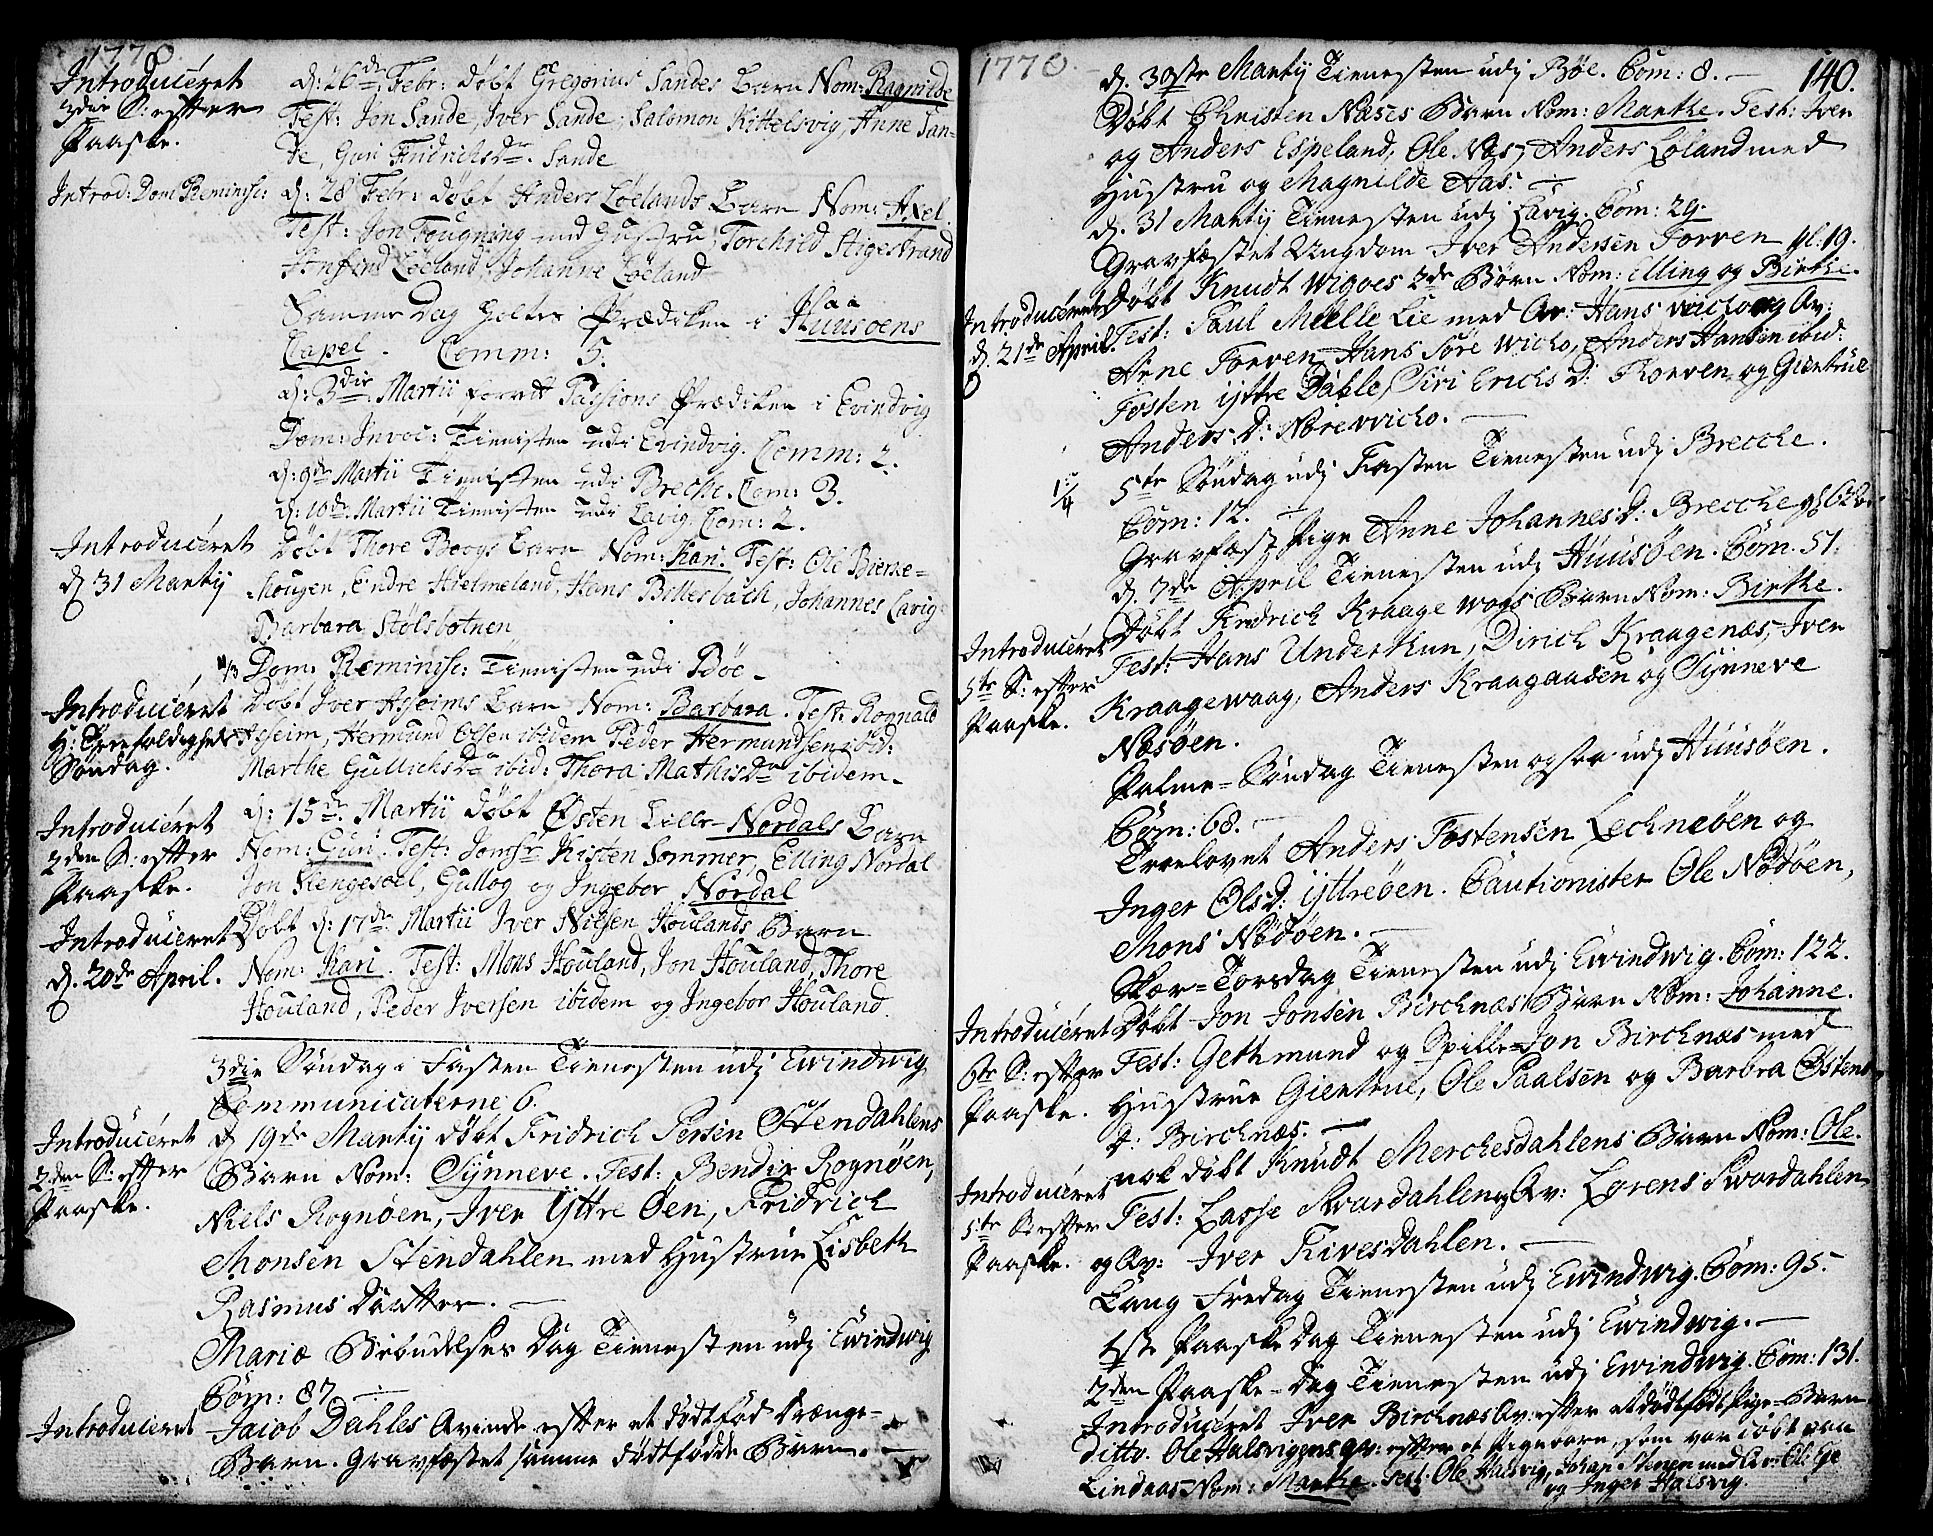 1770.
Introduceret
3die S: efter
Paaske.
d: 26de Febr: Døbt Gregorius Sandes Barn Nom: Ragnilde
Test: Jon Sande, Iver Sande, Salomon Kittelsvig, Anne San-
de, Guri Fridrichsdr. Sande
Introd: Dom Reminisc:
d: 28 Febr: døbt Anders Løelands Barn Nom: Axel.
Test: Jon Fougning med Hustru, Torchild Stigestrand
Anfind Løeland, Johanne Løeland
Samme Dag holdes Prædiken i Huusøens
Capel. Comm: 5.
d: 3die Martii forrett Passions Prædiken i Evindvig
Dom: Invoc: Tienisten udi Evindvig. Comm: 2.
d: 9de Martii Tienisten udi Breche. Com: 3.
d: 10de Martii Tienisten udi Lavig. Com: 2.
Introduceret
d 31 Martij
Døbt Thore Boogs Barn Nom: Kari. Test: Ole Bierse-
Mougen, Endre Hielmeland, Hans Bittesbach, Johannes Lavig
Barbara Stølsbotnen
11/3 Dom: Reminisc: Tienisten udi Bøe
Introduceret
H: Treefoldigheds
Søndag.
Døbt Iver Asheims Barn Nom: Barbara. Test: Rognald
Asheim, Hermund Olsen ibidem Peder Hermundsen ibid:
Marthe Gullichsdr ibid: Thora Mathisdr ibidem
Introduceret
2den S: efter
Paaske.
d: 15de Martii døbt Østen Lille-Nordals Barn
Nom: Guri. Test: Jomfr Kisten Sommer, Elling Nordal
Jon Slengesoel, Gullog og Ingebor Nordal
Introduceret
d. 20de April.
Døbt d: 17de Martii Iver Nielsen Houlands Barn
Nom: Kari. Test: Mons Houland, Jon Houland, Thore
Houland, Peder Iversen ibidem og Ingebor Houland.
3die Søndag i Fasten Tienesten udj Ewindwig
Communicaterne 6.
Introduceret
2den S: efter
Paaske.
d 19de Martij døbt Fridrich Persen Stendahlens
Barn Nom: Synneve. Test: Bendix Rognøen,
Niels Rognøen, Iver Yttre Øen, Fridrich
Monsen Stendahlen med Hustrue Lisbeth
Rasmus Daatter.
Mariæ Bebudelses Dag Tienesten udj Ewindwig
Com: 87.
Introduceret
Jacob Dahles Qvinde efter et dødfød Drænge-
Barn. Gravfæstet samme dødfødde Barn.
1770.
140.
d. 30ste Martij Tienesten udj Bøe. Com: 8.
Døbt Christen Næses Barn Nom: Marthe. Test: Iver
og Anders Espeland, Ole Næs, Anders Løland med
Hustru og Magnilde Aas.
d. 31 Martij Tienesten udj Lavig. Com: 29.
Gravfæstet Ungdom Iver Andersen Torven gl: 19.
Introduceret
d. 21de April.
Døbt Knudt Wigoes 2de Børn Nom: Elling og Birthe.
Test: Paul Melle Lie med Qv: Hans wicho og Qv:
Arne Torven, Hans Søre wicho, Anders Hansen ibid:
Tosten ÿttre Dahle, Siri Erichs D: Thorven og Gientrue
Anders D: Nørewicho.
1/4
5te Søndag udj Fasten Tienesten udj Brecche.
Com: 12.
Gravfæst Pige Anne Johannes D: Brecche
d. 7de April Tienesten udj Huusøen. Com. 51.
Introduceret
5te S: efter
Paaske.
Døbt Fredrich Kraage wogs Barn Nom: Birthe.
Test: Hans Underthun, Dirich Kraagenæs, Iver
Kraagewaag, Anders Kraagaaden og Synneve
Næsøen.
Palme-Søndag Tienesten ogsaa udj Huusøen.
Com: 68.
Troelovet Anders Tostensen Lechneøen og
Inger Ols D: ÿttreøen. Cautionister Ole Nødøen,
Mons Nødøen.
Skær-Torsdag Tienesten udj Ewindwig. Com: 122.
Introduceret
6te S: efter
Paaske.
Døbt Jon Jonsen Birchnæs Barn Nom: Johanne.
Test: Gethmund og Spille-Jon Birchnæs med
Hustrue Gientrue, Ole Paalsen og Barbra Østens
D: Birchnæs.
Introduceret
5te S: efter
Paaske.
nok døbt Knudt Merchesdahlens Barn Nom: Ole.
Test: Lasse Swardahlen og Qv: Lorens Swardahlen
og Qv: Iver Tivesdahlen.
Lang Fredag Tienesten udj Ewindwig. Com: 95.
1ste Paaske Dag Tienesten udj Ewindwig.
2den Paaske-Dag Tienesten udj Ewindwig. Com: 131.
Introduceret Iver Birchnæs Qv: efter et dødfødt Pige-Barn
ditto. Ole Halsvigens qv: efter et Pigebarn, som var døbt paa
Lindaas Nom: Marthe. Test: Ole Halsvig,
og Inger Halsvig.